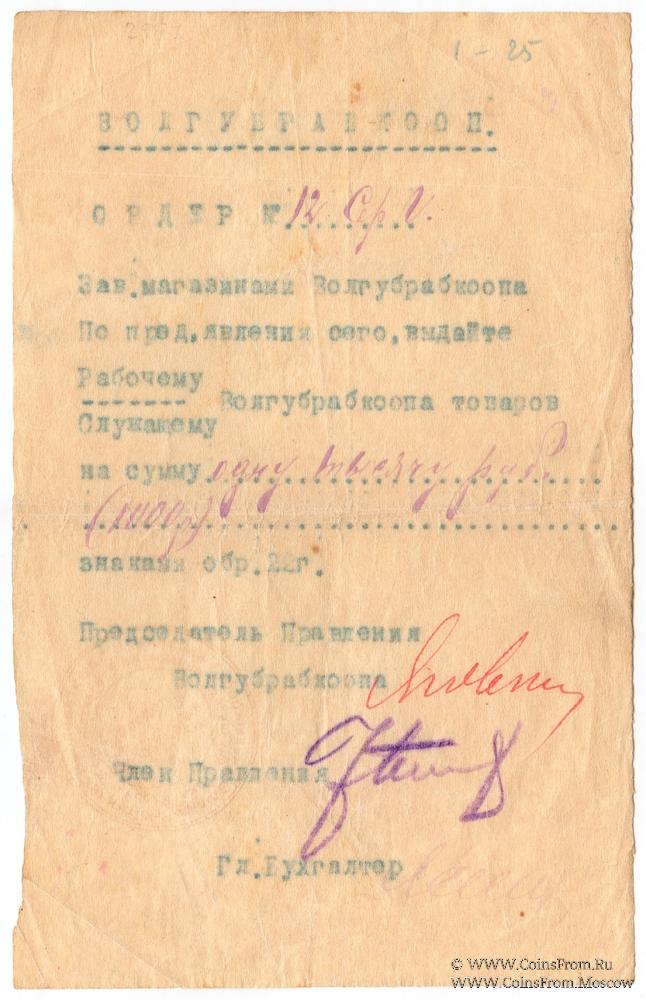 1-25
ВОЛГУБРАБКООП.
ОРДЕР № 12 Сер V.
Зав.магазинами Волгубрабкоопа
По пред,явления сего,выдайте
Рабочему
Волгубрабкоопа товаров
Служащему
на сумму одну тысячу руб.
(1000р)
знаками обр.22г.
Председатель Правления
Волгубрабкоопа
Член Правления
Гл.Бухгалтер
© WWW.CoinsFrom.Ru
WWW.CoinsFrom.Moscow